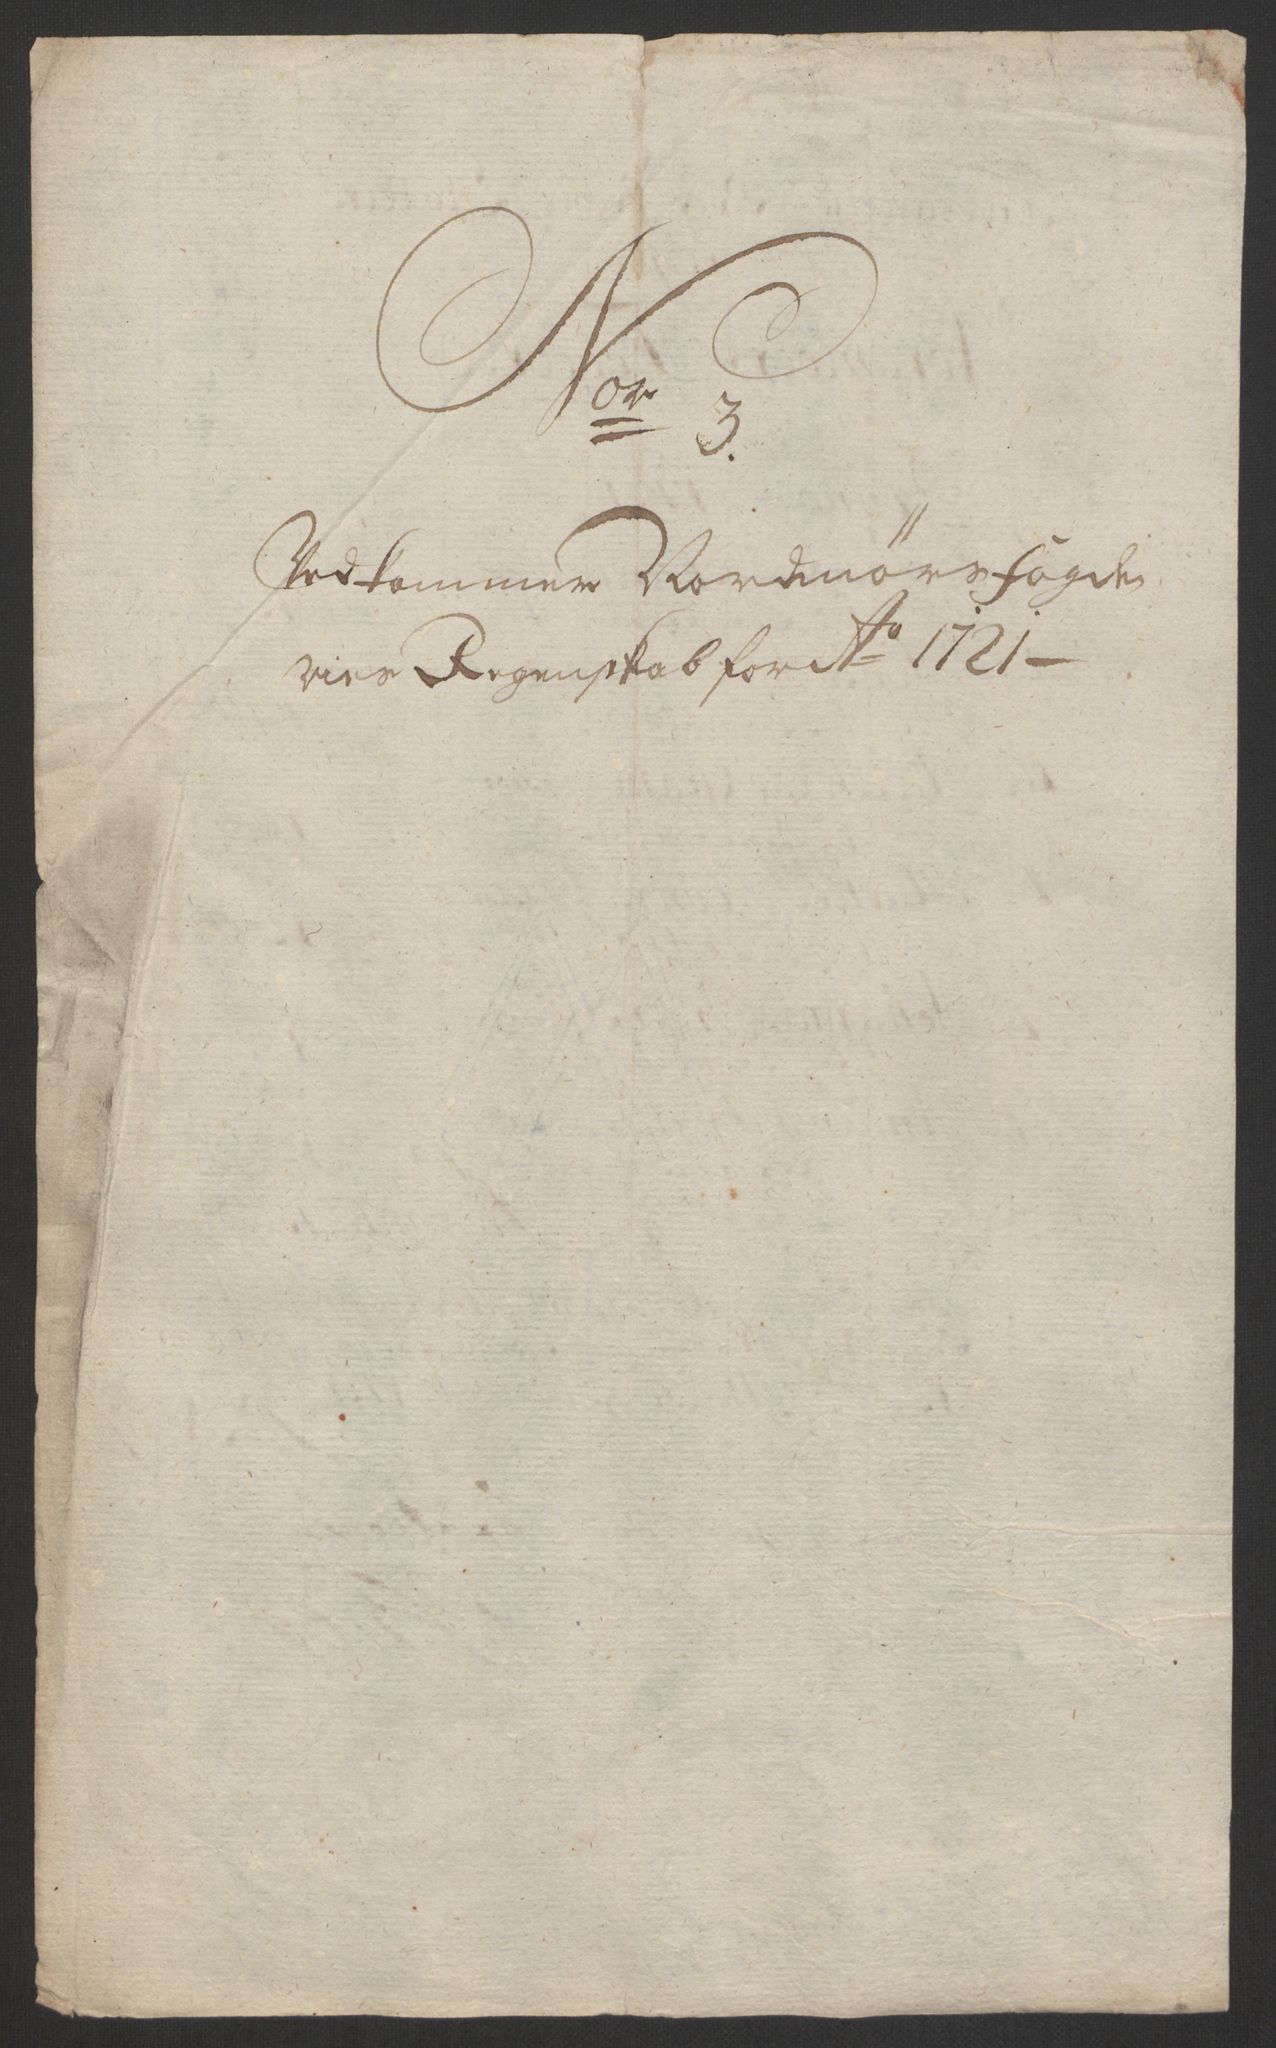 Nor 3.
Vedkommer Nordmörs fögde
ries Regenskab for Ao 1721 —